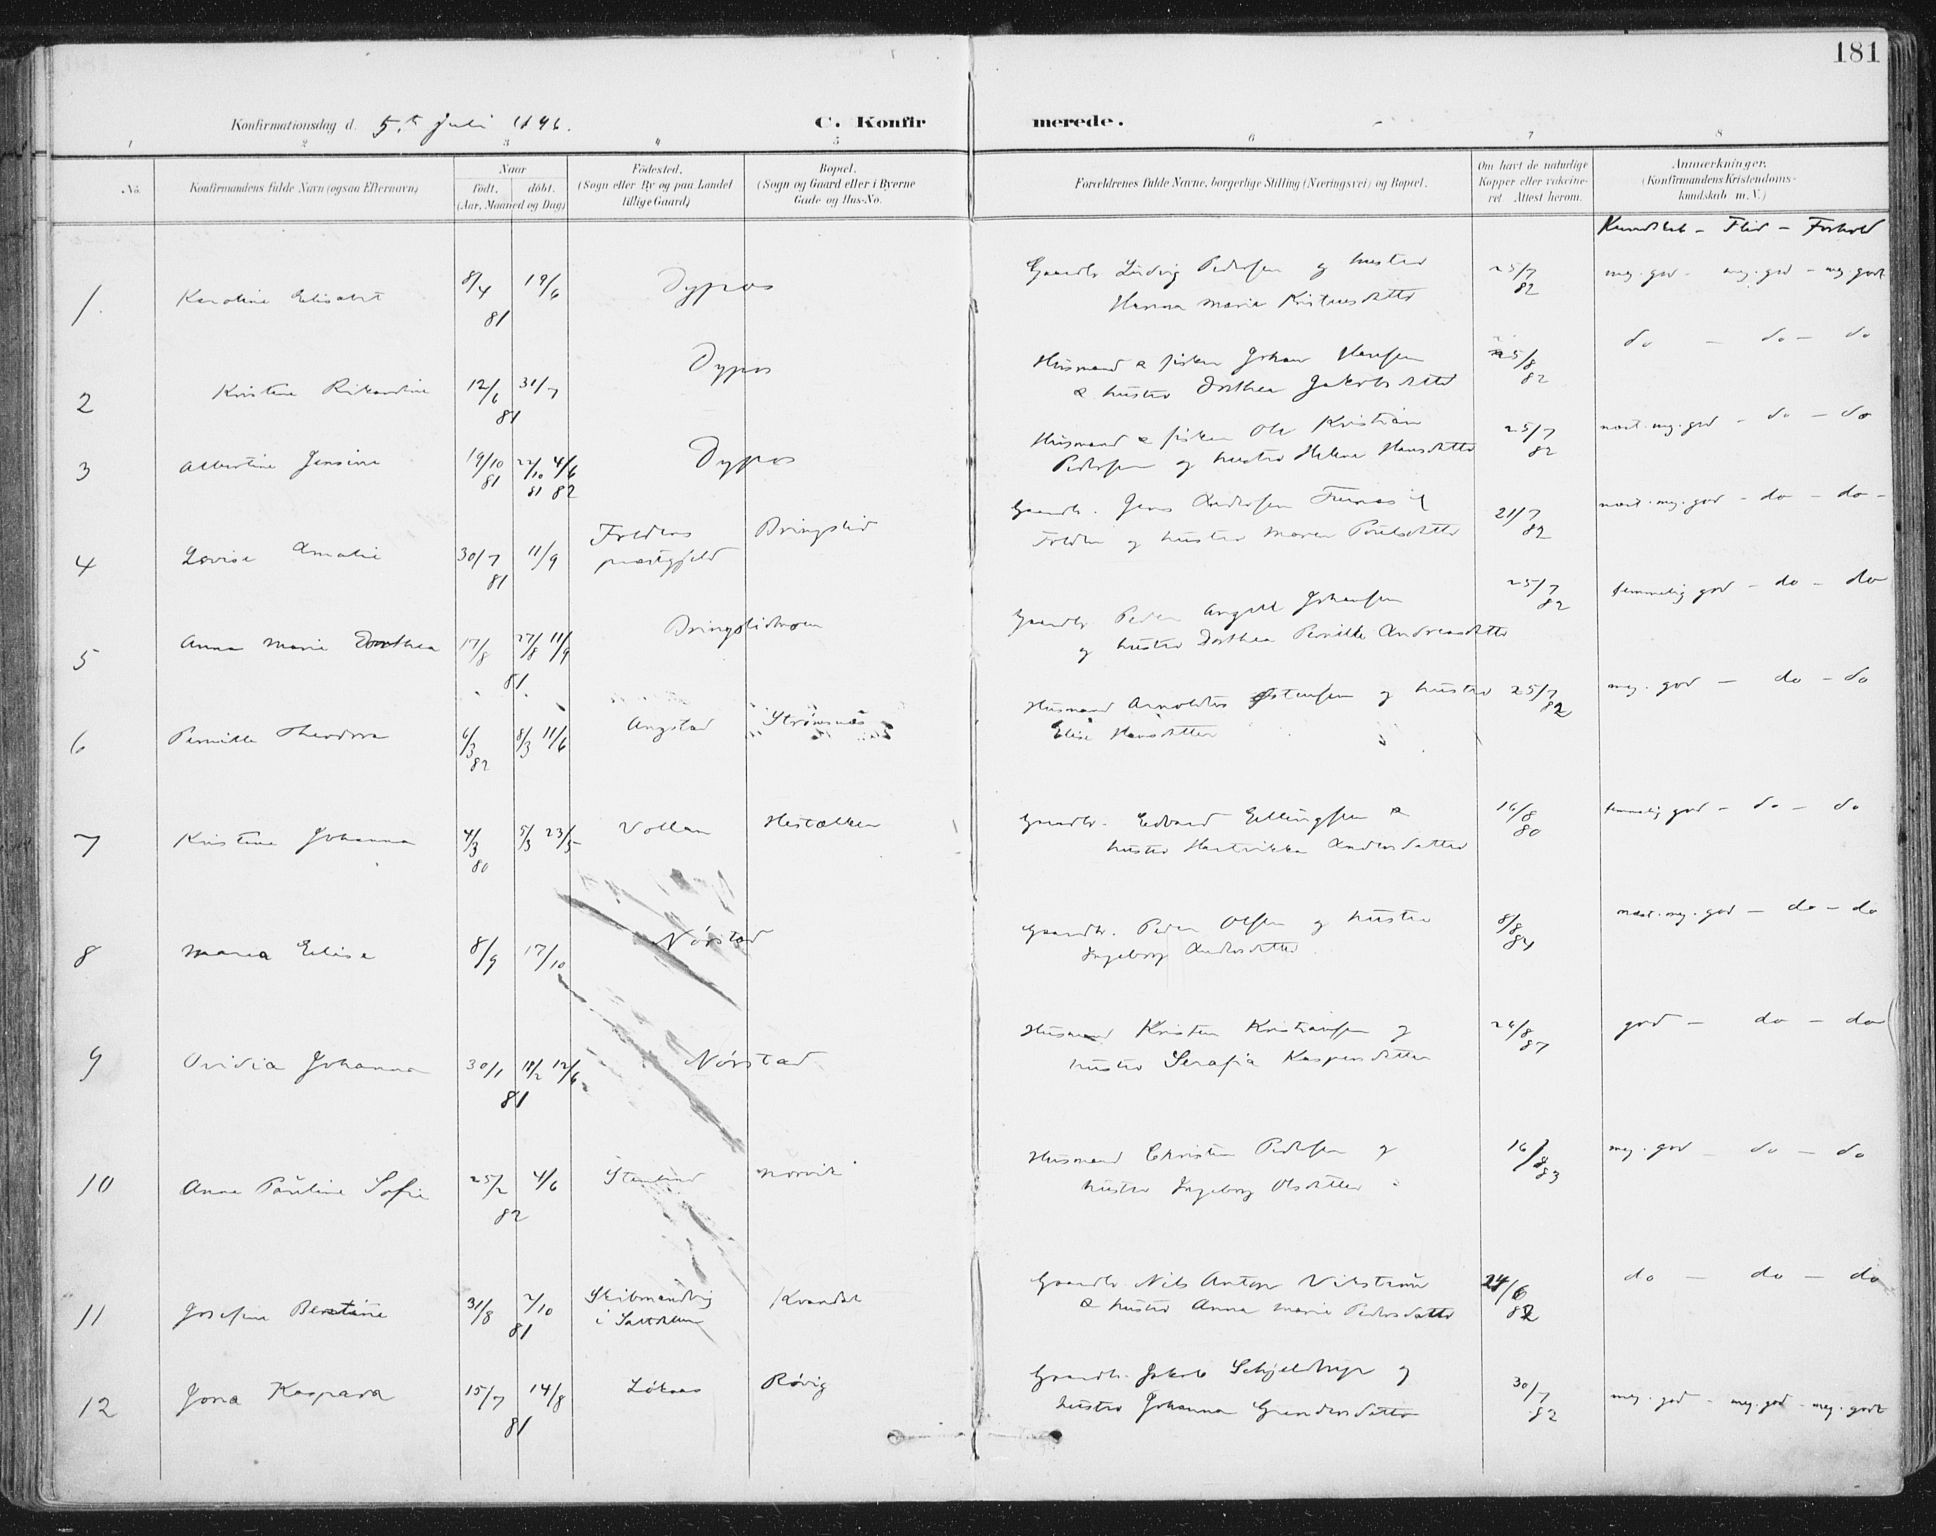 181
Konfirmationsdag d. 5te Juli 1896.
C. Konfir merede.
1 2 3 4 5 6 7 8
No.
Konfirmandens fulde Navn (ogsaa Efternavn)
Naar
födt. döbt.
(Aar, Maaned og Dag)
Födested.
(Sogn eller By og paa Landet
tillige Gaard)
Bopæl.
(Sogn og Gaard eller i Byerne
Gade og Hus-No.
Forældrenes fulde Navne, borgerlige Stilling (Næringsvei) og Bopæl.
Om havt de naturlige
Kopper eller vakcine-
ret Attest herom.
Anmærkninger.
(Konfirmandens Kristendoms-
kundskab m. V.)
Kundskab – Flid – Forhold
1. Karoline Elisabet 8/4 81 19/6 Dypos
Gaardbr Ludvig Pedersen og hustro
Hanna Maria
25/7 82 meg. god – meg. god – meg godt
2 Kristine 12/6 31/7 81 Dypos
Husmand & fisker Johan Hansen
& hustro Dorthea Jakobsdatter
25/8 82 do – do – do
3 Albertine Jensine 19/10 81 22/10 81 4/6 82 Dypos
Husmand & fisker Ole Kristian
Pedersen og hustro Helene Hansdatter
25/7 82 næst. meg. god – do – do
4 Lovise Amalie 30/7 81 11/9 Foldens
præstegjeld Bringslid
Gaardbr. Jens Andersen
Folden og hustro Maren Paulsdatter
21/7 82 næst. meg. god – do – do –
5 Anna Marie Dorthea 17/8 27/8 11/9 81
Gaardbr Peder Angell Johansen
og hustro Dorthea Pernille Andreasdatter
25/7 82 temmelig god – do – do
6 Pernille Theodora 6/3 82 8/3 11/6 Angstad Strømsnæs
Husmand Arnoldus og hustro
Elise Hansdatter
25/7 82 meg. god – do – do
7 Kristine Johanna 4/3 80 5/3 23/5 Vollan
Gaardbr. Edvard Ellingsen &
hustro Hartvikka Andersdatter
16/8 80 temmelig god – do – do
8 Maria Elisa 8/9 17/10 Nørstad
Gaardbr. Peder Olsen og hustro
Ingeborg Andersdatter
8/8 84 næst. meg. god – do – do
9 Ovidia Johanna 30/1 12/6 81 Nørstad
Husmand Kristen Kristiansen og
hustro Serafia Kaspersdatter
26/8 87 god – do – do
10 Anna Pauline Sofie 25/2 4/6 82
Husmand Christen Pedersen og
hustro Ingeborg Olsdatter
16/8 83 meg. god – do – do
11 Josefine Bentine 31/8 2/10 81 Kvandal
Gaardbr. Nils Anton
& hustro Anna Marie Pedersdatter
24/6 82 do – do – do
12 Jona Kaspara 15/7 14/8 81 Løkaas Røvig
Gaardbr. Jakob Schjelderup og
hustro Johanna
30/7 82 meg. god – meg. god – meg. godt